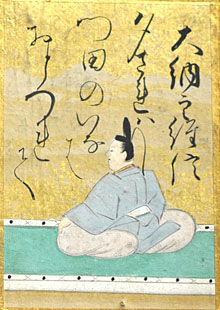 大納言経信
夕されは
門田のいなは
おとつれて